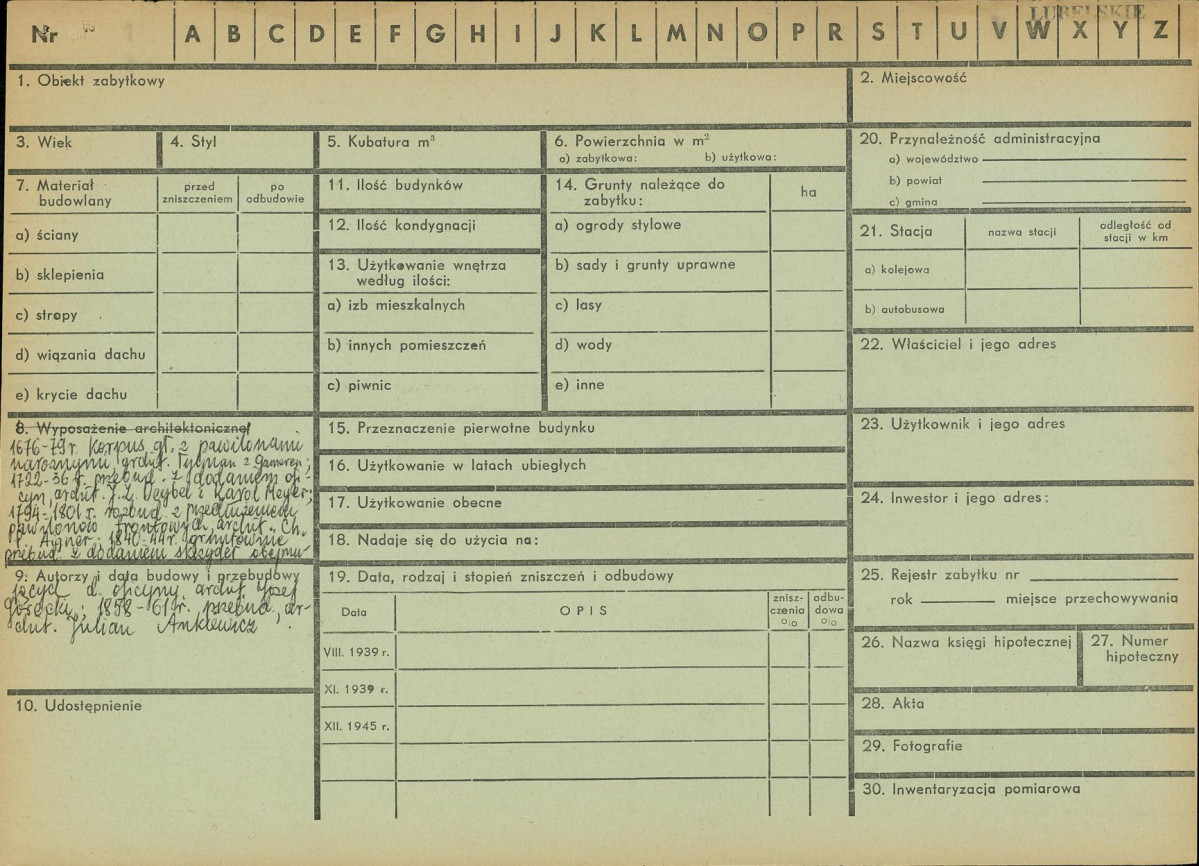 Nr A B C D E F G H I J K L M N O P R S T U V W X Y Z
LUBELSKIE
1. Obiekt zabytkowy
2. Miejscowość
3. Wiek
4. Styl
5. Kubatura m³
6. Powierzchnia w m²
a) zabytkowa: b) użytkowa:
7. Materiał budowlany
przed zniszczeniem
po odbudowie
a) ściany
b) sklepienia
c) stropy
d) wiązania dachu
e) krycie dachu
11. Ilość budynków
12. Ilość kondygnacji
13. Użytkowanie wnętrza
według ilości:
a) izb mieszkalnych
b) innych pomieszczeń
c) piwnic
14. Grunty należące do
zabytku:
ha
a) ogrody stylowe
b) sady i grunty uprawne
c) lasy
d) wody
e) inne
8. Wyposażenie architektoniczne
1676-79 r. Korpus gł. z pawilonami
narożnymi, archit. Tylman z Gameren;
1722-36 r. przebud. z dodaniem ofi-
cyn, archit. J. Z. Deybel i Karol Meyer;
1794-1801 r. rozbud. z przedłużeniem
pawilonów frontowych, archit. Ch.
P. Aigner; 1840-44 r. gruntownie
przebud. z dodaniem skrzydeł obejmu-
9. Autorzy i data budowy i przebudowy
jących d. oficyny, archit. Józef
Górecki; 1858-61 r. przebud., ar-
chit. Julian Ankiewicz.
10. Udostępnienie
15. Przeznaczenie pierwotne budynku
16. Użytkowanie w latach ubiegłych
17. Użytkowanie obecne
18. Nadaje się do użycia na:
19. Data, rodzaj i stopień zniszczeń i odbudowy
Data
OPIS
znisz-
czenia
o|o
odbu-
dowa
o|o
VIII. 1939 r.
XI. 1939 r.
XII. 1945 r.
20. Przynależność administracyjna
a) województwo
b) powiat
c) gmina
21. Stacja
nazwa stacji
odległość od
stacji w km
a) kolejowa
b) autobusowa
22. Właściciel i jego adres
23. Użytkownik i jego adres
24. Inwestor i jego adres:
25. Rejestr zabytku nr
rok miejsce przechowywania
26. Nazwa księgi hipotecznej
27. Numer
hipoteczny
28. Akta
29. Fotografie
30. Inwentaryzacja pomiarowa